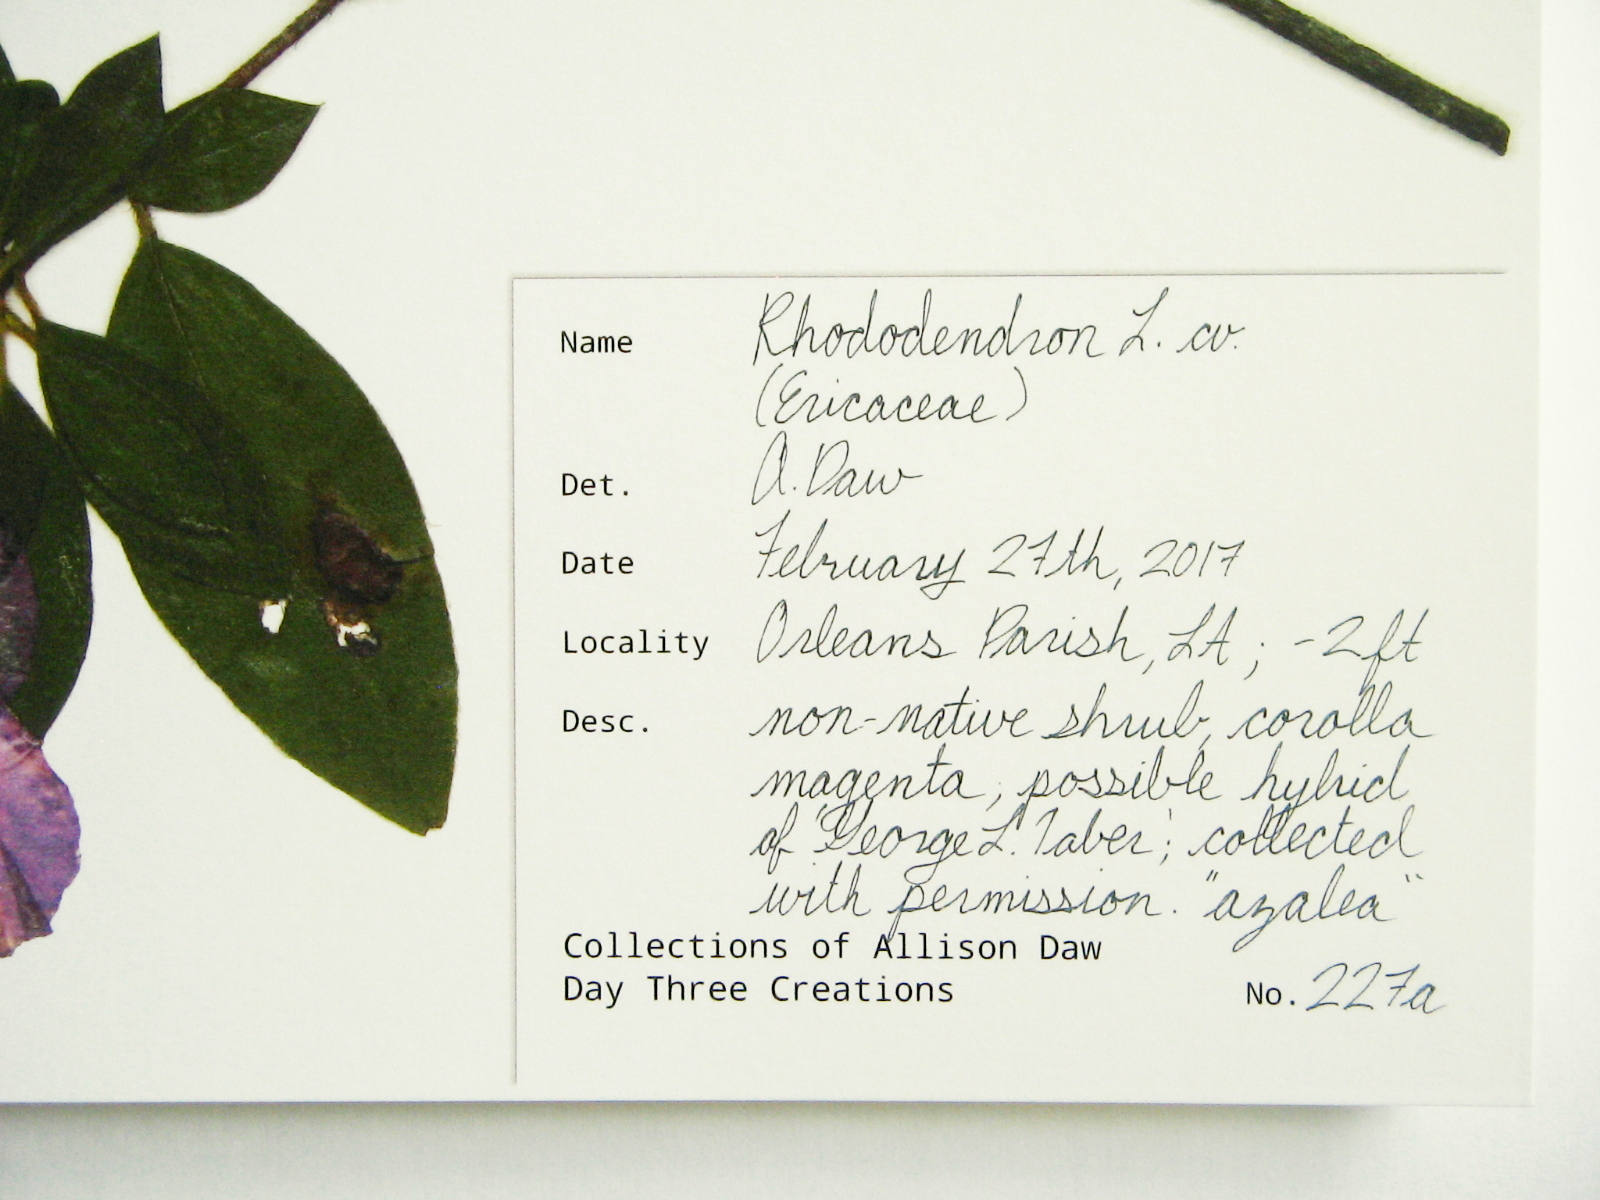 Name Rhododendron L. cv.
(Ericaceae)
Det. A. Daw
Date February 27th, 2017
Locality Orleans Parish, LA ; -2ft
Desc. non-native shrub, corolla
magenta; possible hybrid
of 'George L. Taber'; collected
with permission. "azalea"
Collections of Allison Daw
Day Three Creations No. 227a